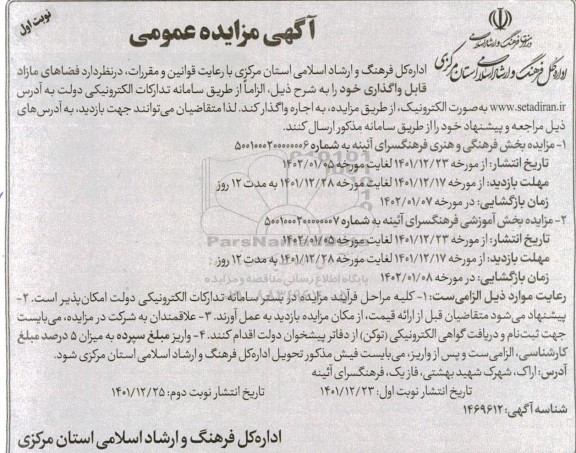 نوبت اول
وزارت فرهنگ و ارشاد اسلامی
اداره کل فرهنگ و ارشاد اسلامی استان مرکزی
آگهی مزایده عمومی
اداره‌کل فرهنگ و ارشاد اسلامی استان مرکزی با رعایت قوانین و مقررات، درنظردارد فضاهای مازاد
قابل واگذاری خود را به شرح ذیل، الزاماً از طریق سامانه تدارکات الکترونیکی دولت به آدرس
www.setadiran.ir به‌صورت الکترونیک، از طریق مزایده، به اجاره واگذار کند. لذا متقاضیان می‌توانند جهت بازدید، به آدرس‌های
ذیل مراجعه و پیشنهاد خود را از طریق سامانه مذکور ارسال کنند.
۱- مزایده بخش فرهنگی و هنری فرهنگسرای آئینه به شماره ۵۰۰۱۰۰۰۲۰۰۰۰۰۰۰۶
تاریخ انتشار: از مورخه ۱۴۰۱/۱۲/۲۳ لغایت مورخه ۱۴۰۲/۰۱/۰۵
مهلت بازدید: از مورخه ۱۴۰۱/۱۲/۱۷ لغایت مورخه ۱۴۰۱/۱۲/۲۸ به مدت ۱۲ روز
زمان بازگشایی: در مورخه ۱۴۰۲/۰۱/۰۷
۲- مزایده بخش آموزشی فرهنگسرای آئینه به شماره ۵۰۰۱۰۰۰۲۰۰۰۰۰۰۰۷
تاریخ انتشار: از مورخه ۱۴۰۱/۱۲/۲۳ لغایت مورخه ۱۴۰۲/۰۱/۰۵
مهلت بازدید: از مورخه ۱۴۰۱/۱۲/۱۷ لغایت مورخه ۱۴۰۱/۱۲/۲۸ به مدت ۱۲ روز
زمان بازگشایی: در مورخه ۱۴۰۲/۰۱/۰۸
رعایت موارد ذیل الزامی‌ست: ۱- کلیه مراحل فرآیند مزایده در بستر سامانه تدارکات الکترونیکی دولت امکان‌پذیر است. ۲-
پیشنهاد می‌شود متقاضیان قبل از ارائه قیمت، از مکان مزایده بازدید به عمل آورند. ۳- علاقمندان به شرکت در مزایده، می‌بایست
جهت ثبت‌نام و دریافت گواهی الکترونیکی (توکن) از دفاتر پیشخوان دولت اقدام کنند. ۴- واریز مبلغ سپرده به میزان ۵ درصد مبلغ
کارشناسی، الزامی‌ست و پس از واریز، می‌بایست فیش مذکور تحویل اداره‌کل فرهنگ و ارشاد اسلامی استان مرکزی شود.
آدرس: اراک، شهرک شهید بهشتی، فاز یک، فرهنگسرای آئینه
تاریخ انتشار نوبت اول: ۱۴۰۱/۱۲/۲۳ تاریخ انتشار نوبت دوم: ۱۴۰۱/۱۲/۲۵
شناسه آگهی: ۱۴۶۹۶۱۲
اداره‌کل فرهنگ و ارشاد اسلامی استان مرکزی